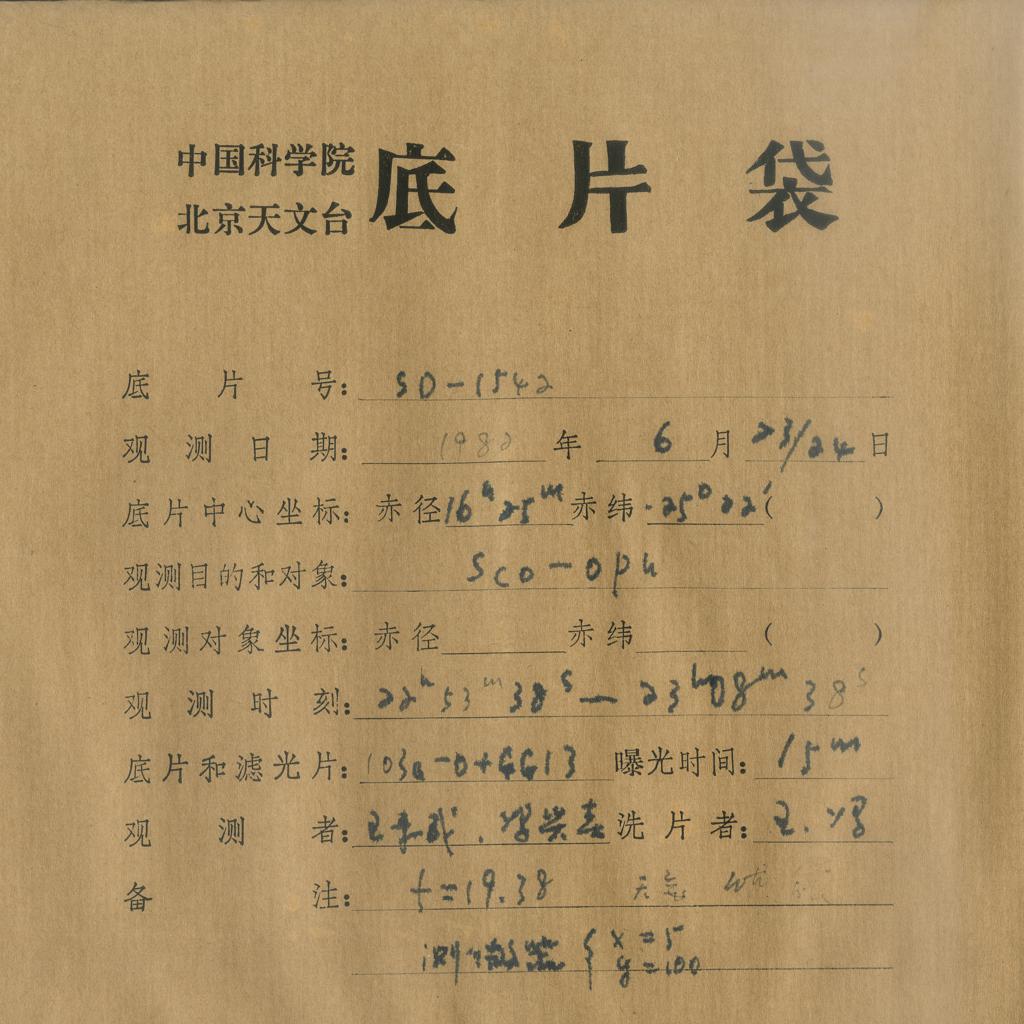 中国科学院
北京天文台
底片袋
底片号: SD-1542
观测日期: 1982年 6月 23/24日
底片中心坐标: 赤径16h25m赤纬-25°22′( )
观测目的和对象: Sco-oph
观测对象坐标: 赤径 赤纬 ( )
观测时刻: 22h53m38s—23h08m38s
底片和滤光片: 103a-D+GG13 曝光时间: 15m
观测者: 洗片者: 王.
备注: f=19.38 天气
测微器 { x=5
y=100